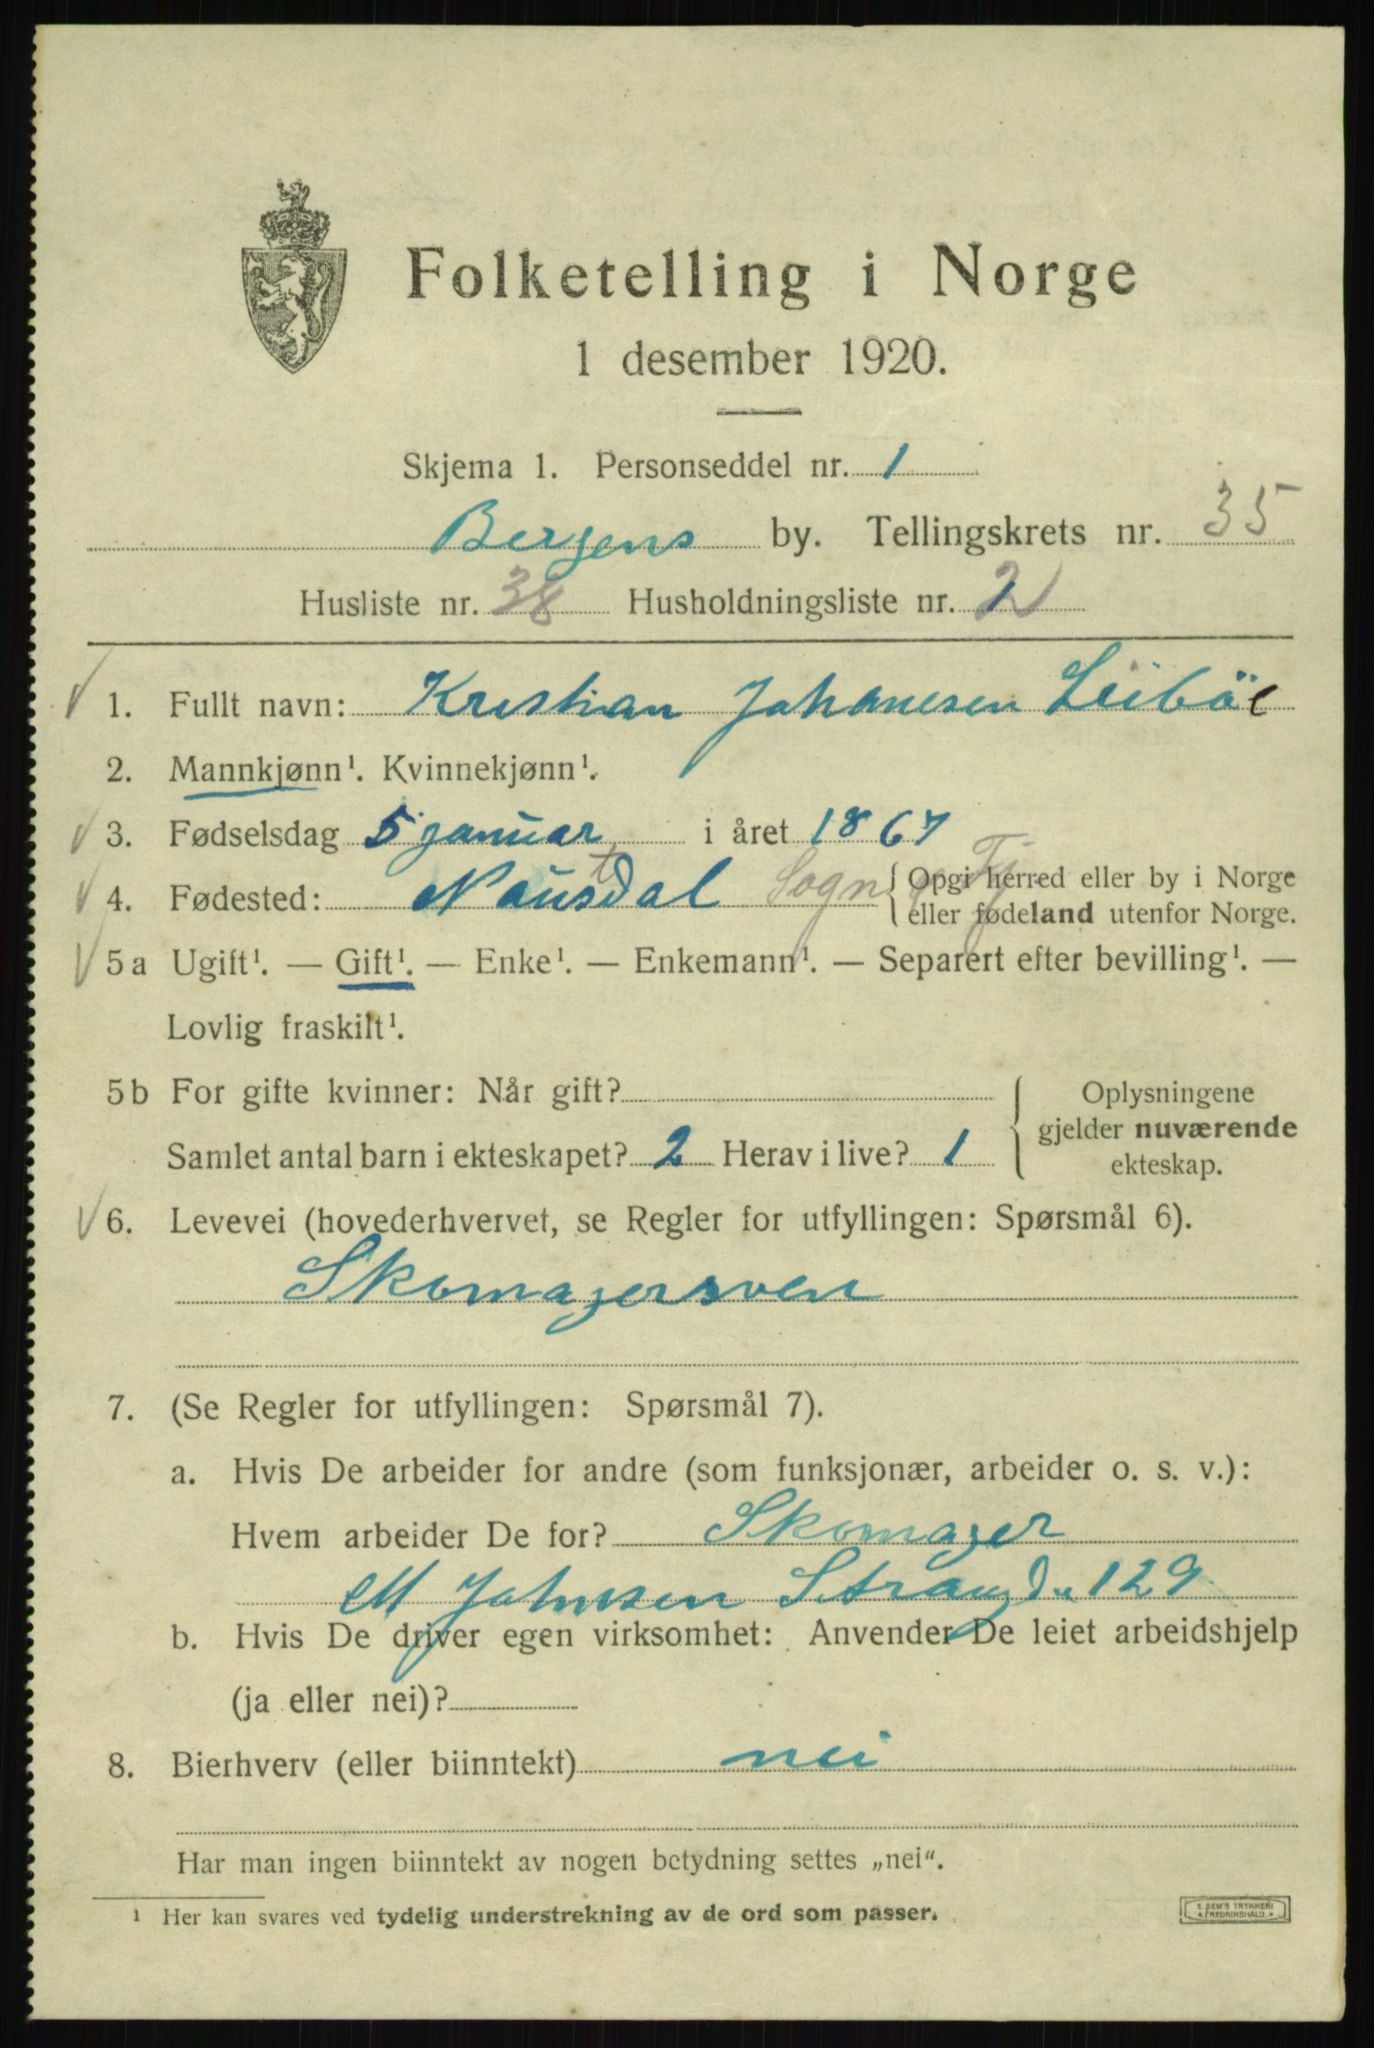 Folketelling i Norge
1 desember 1920.
Skjema 1. Personseddel nr. 1
Bergens by. Tellingskrets nr. 35
Husliste nr. 38 Husholdningsliste nr. 2
1. Fullt navn: Kristian Johanesen
2. Mannkjønn¹. Kvinnekjønn¹.
3. Fødselsdag 5 januar i året 1867
4. Fødested: Naustdal Sogn Fj. { Opgi herred eller by i Norge
eller fødeland utenfor Norge.
5a Ugift¹. — Gift¹. — Enke¹. — Enkemann¹. — Separert efter bevilling¹. —
Lovlig fraskilt¹.
5b For gifte kvinner: Når gift?
Samlet antal barn i ekteskapet? 2 Herav i live? 1
Oplysningene
gjelder nuværende
ekteskap.
6. Levevei (hovederhvervet, se Regler for utfyllingen: Spørsmål 6).
Skomagersven
7. (Se Regler for utfyllingen: Spørsmål 7).
a. Hvis De arbeider for andre (som funksjonær, arbeider o. s. v.):
Hvem arbeider De for? Skomager
M Johnsen 129
b. Hvis De driver egen virksomhet: Anvender De leiet arbeidshjelp
(ja eller nei)?
8. Bierhverv (eller biinntekt) nei
Har man ingen biinntekt av nogen betydning settes „nei“.
¹ Her kan svares ved tydelig understrekning av de ord som passer.
E. SEM'S TRYKKERI
FREDRIKSHALD